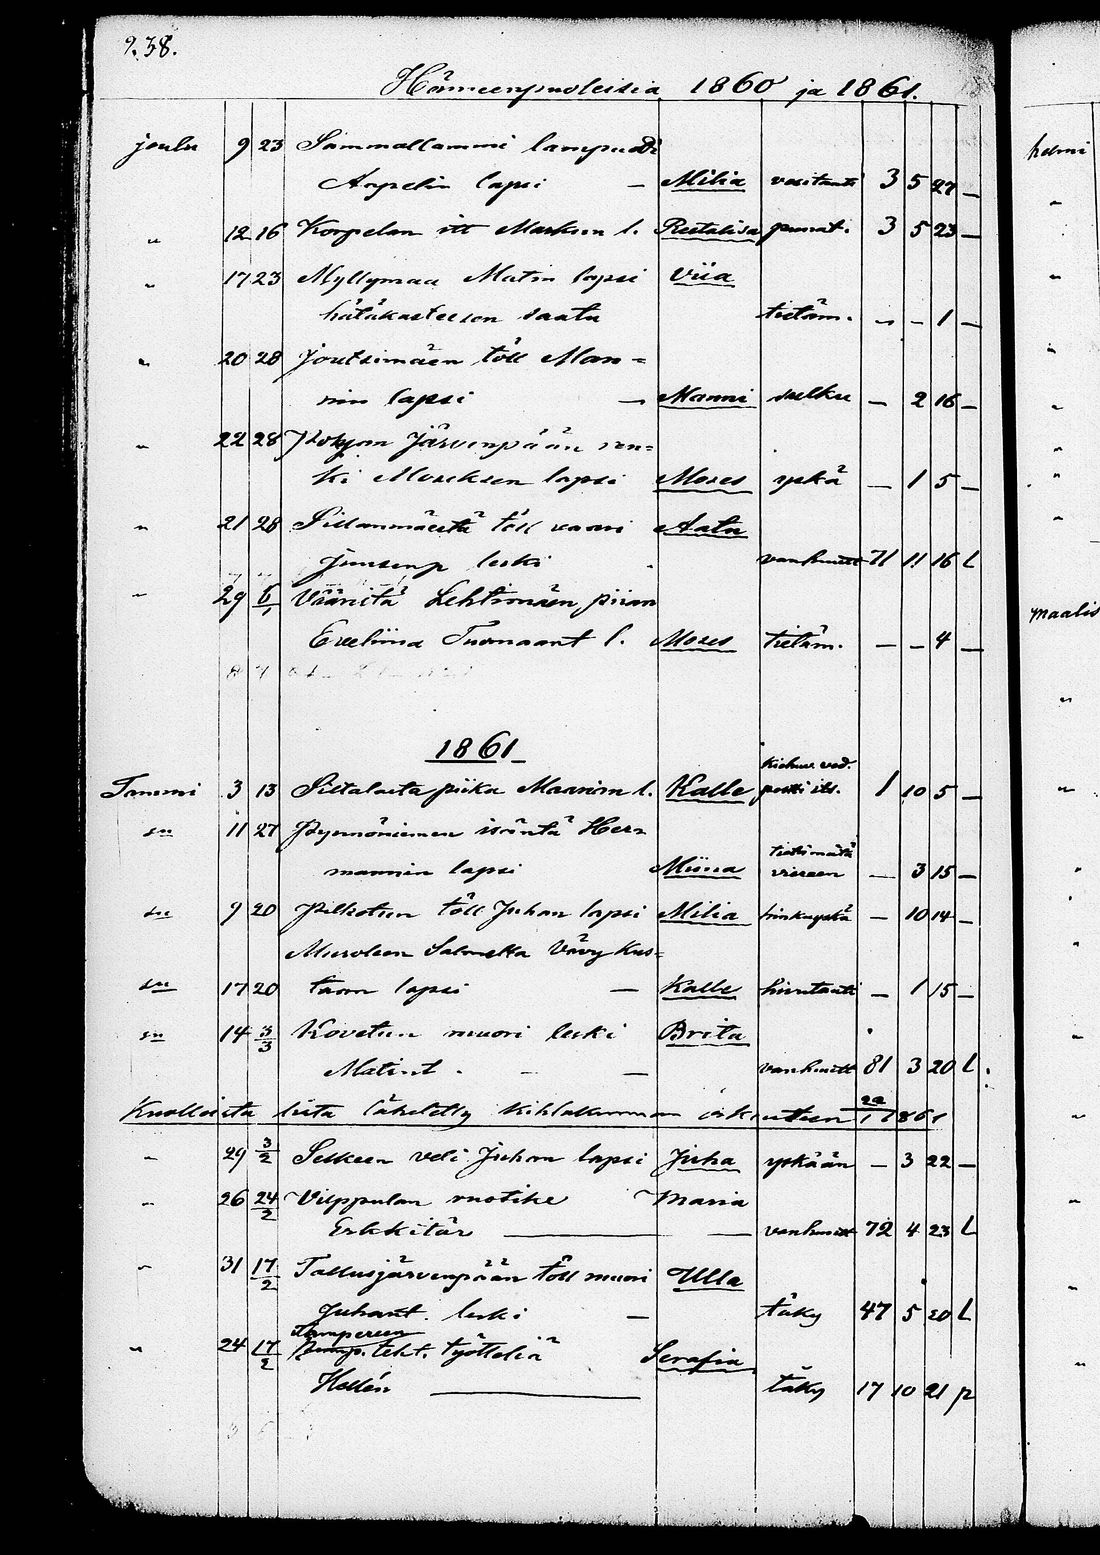 9.38.
Hämeenpuoleisia 1860 ja 1861.
joulu 9 23 Sammallammi lampuodi
Arpelin lapsi — Milia vesitauti 3 5 27 —
" 12 16 Korpelan itt Markun l. Reetaliisa punat. 3 5 23 —
" 17 23 Myllymaa Matin lapsi Viia
hätäkasteeson saatu tietäm. — — 1 —
" 20 28 Joutsimäen töll Man=
nin lapsi — Manni sulku — 2 16 —
" 22 28 Pohjan Järvenpään ren=
ki Moseksen lapsi Moses yskä — 1 5 —
" 21 28 Sillanmäestä töll vaari Aatu
Juusenp leski vanhuutt 71 11 16 L
" 29 6/1 Vääritä Lehtimäen piian
Eveliina Tuomaant l. Moses tietäm. — — 4 —
1861
Tammi 3 13 Siltalasta piika Maarian l. Kalle kiehuv. ved. poltti its. 1 10 5 —
" 11 27 Pynnöniemen isäntä Her=
mannin lapsi Miina tietämätä viereen — 3 15 —
" 9 20 Pilkotun töll Juhan lapsi Milia hinkuyskä — 10 14 —
Muroleen Salmelta Vävy Kus=
" 17 20 taan lapsi — Kalle hivutauti — 1 15 —
" 14 3/3 Kovetun muori leski Brita
Matint. — — vanhuutt 81 3 20 L
Kuolleista lista lähetetty kihlakunnan 1861
" 29 3/2 Selkeen veli Juhan lapsi Juha yskään — 3 22 —
" 26 24/2 Vilppulan ruotike Maria
Erkkitär — — vanhuutt 72 4 23 L
" 31 17/2 Tallusjärvenpään töll muori Ulla
Juhant. leski — täky 47 5 20 L
Tampereen
" 24 17/2 teht. työtteliä Serafia
Hellén — täky 17 10 21 p
helmi
maalis